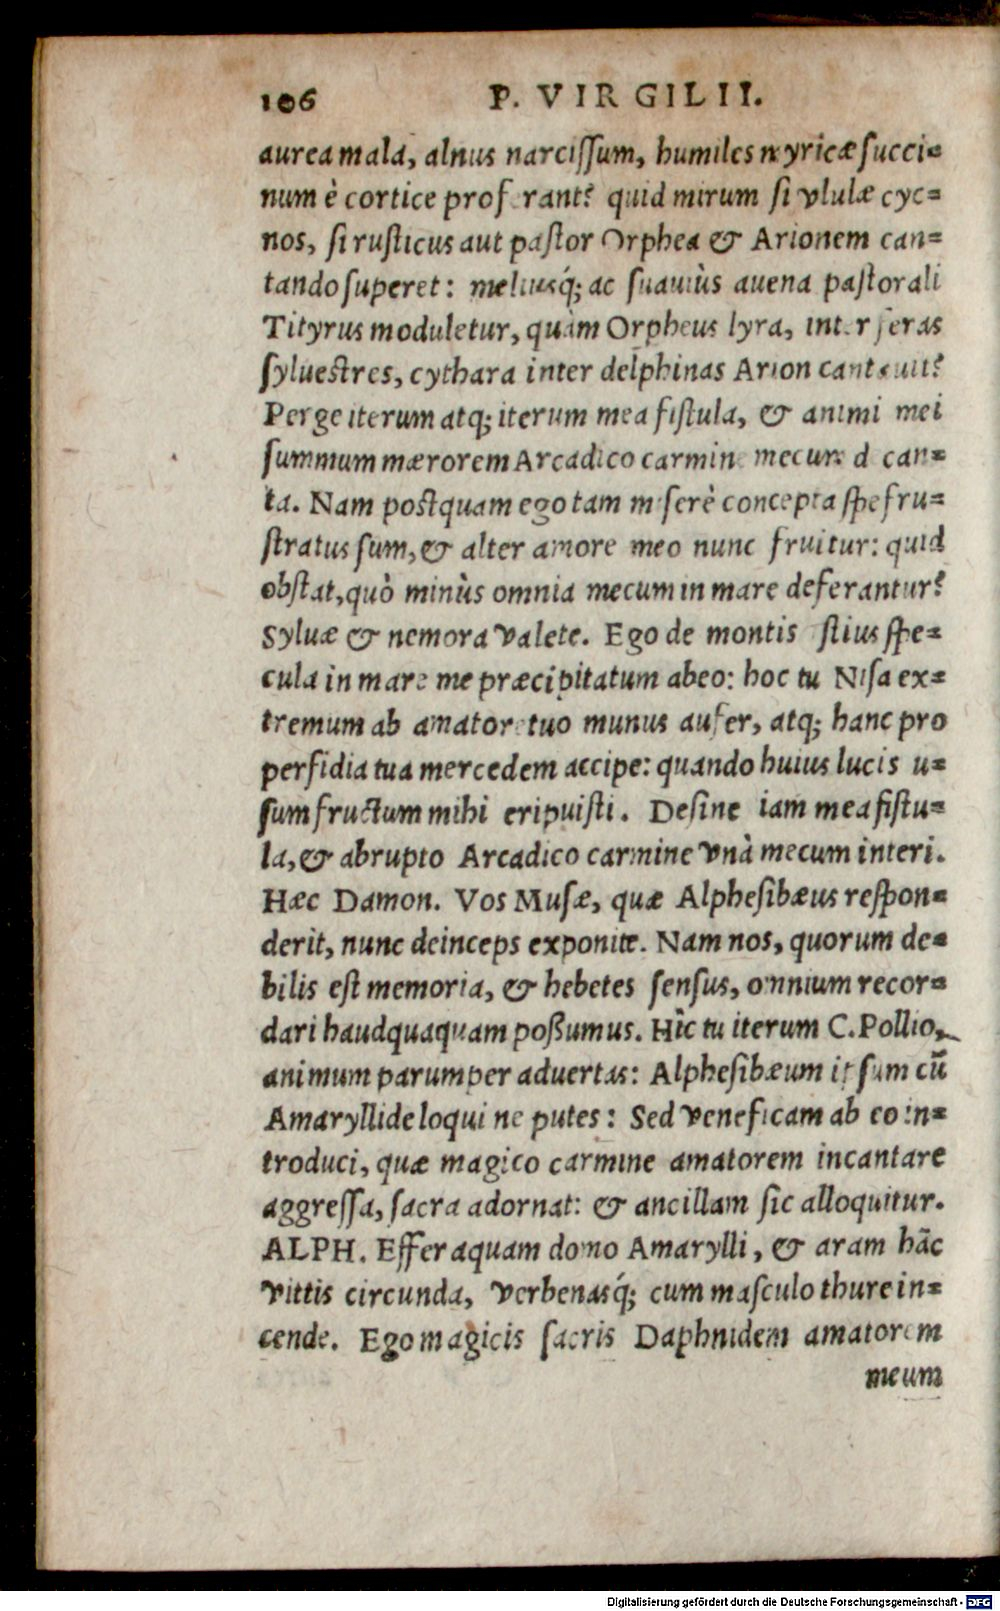 106 P. VIRGILII.
aurea mala, alnus narcissum, humiles myricæ succi=
num è cortice proferant? quid mirum si vlulæ cyc=
nos, si rusticus aut pastor Orphea & Arionem can=
tando superet: meliusq́; ac suauiùs auena pastorali
Tityrus moduletur, quàm Orpheus lyra, inter feras
syluestres, cythara inter delphinas Arion cantauit?
Perge iterum atq; iterum mea fistula, & animi mei
summum mærorem Arcadico carmine mecum d can=
ta. Nam postquam ego tam miserè concepta spe fru=
stratus sum, & alter amore meo nunc fruitur: quid
obstat, quò minùs omnia mecum in mare deferantur?
Syluæ & nemora valete. Ego de montis stius spe=
cula in mare me præcipitatum abeo: hoc tu Nisa ex=
tremum ab amatore tuo munus aufer, atq; hanc pro
perfidia tua mercedem accipe: quando huius lucis u=
sumfructum mihi eripuisti. Desine iam mea fistu=
la, & abrupto Arcadico carmine vnà mecum interi.
Hæc Damon. Vos Musæ, quæ Alphesibæus respon=
derit, nunc deinceps exponite. Nam nos, quorum de=
bilis est memoria, & hebetes sensus, omnium recor=
dari haudquaquam poßumus. Hîc tu iterum C. Pollio,
animum parumper aduertas: Alphesibæum ipsum cū
Amaryllide loqui ne putes: Sed veneficam ab eo in=
troduci, quæ magico carmine amatorem incantare
aggressa, sacra adornat: & ancillam sic alloquitur.
ALPH. Effer aquam domo Amarylli, & aram hãc
vittis circunda, verbenasq́; cum masculo thure in=
cende. Ego magicis sacris Daphnidem amatorem
meum
Digitalisierung gefördert durch die Deutsche Forschungsgemeinschaft - DFG